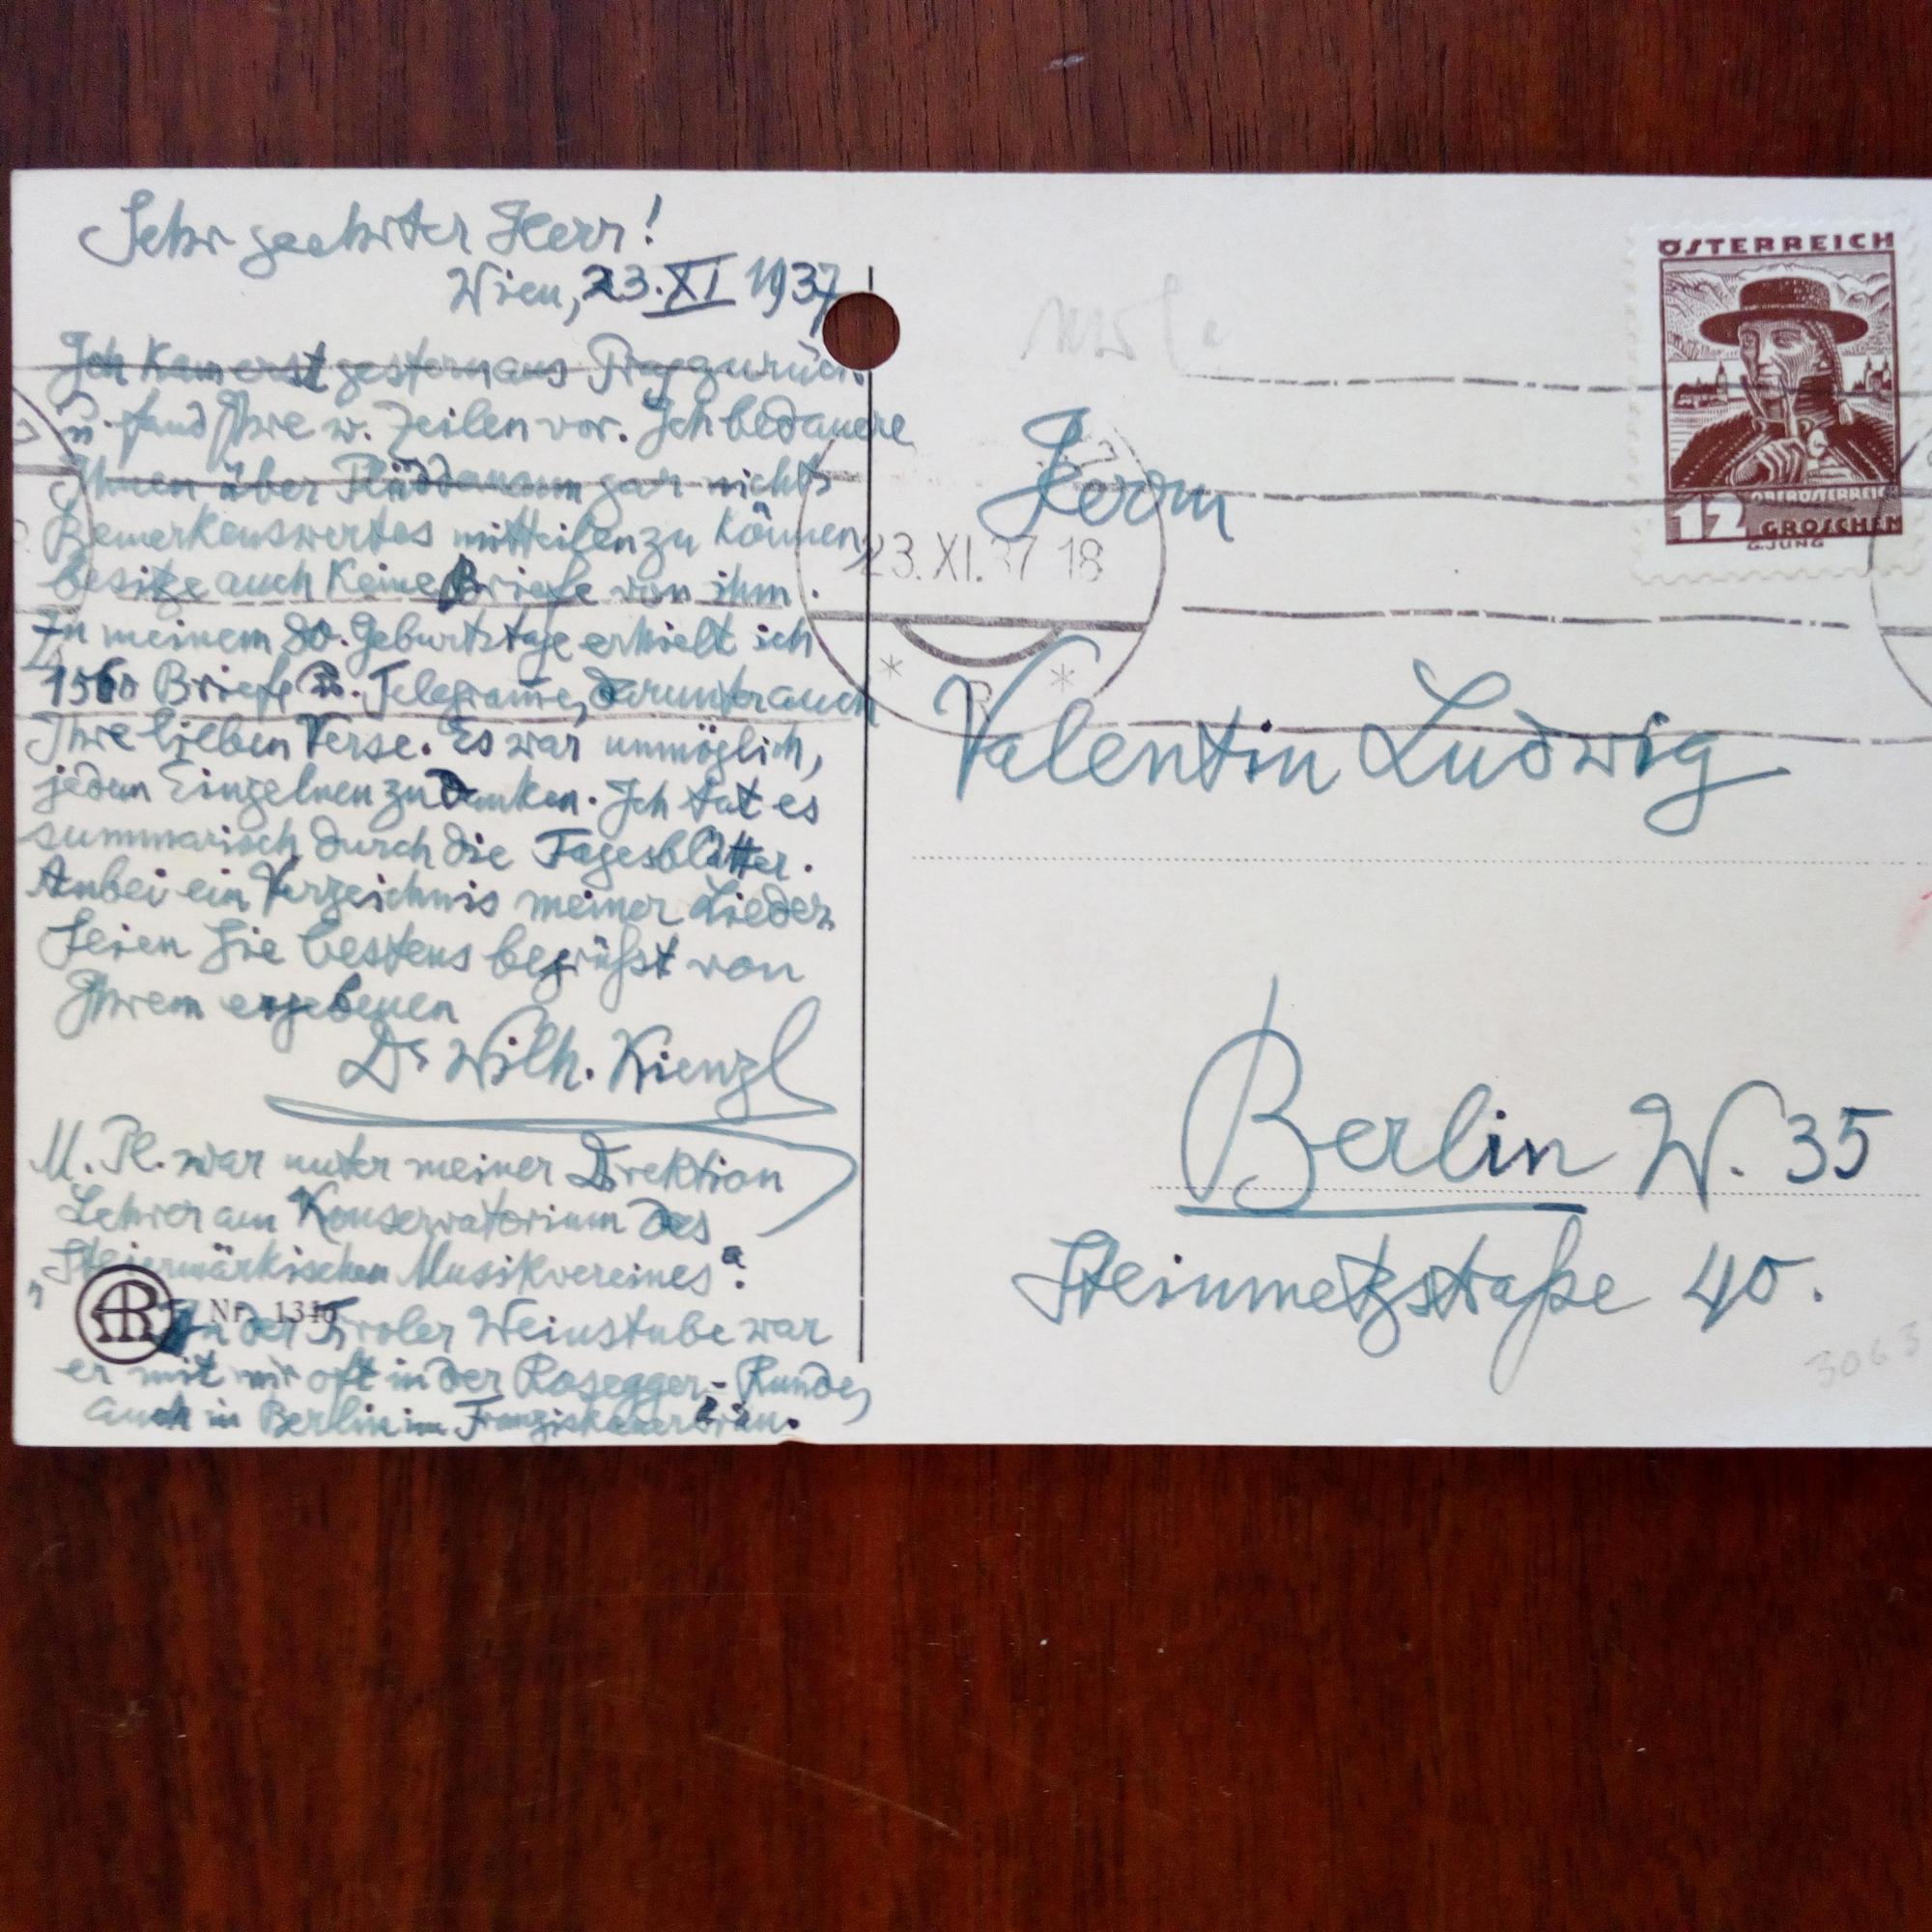 Sehr geehrter Herr!
Wien, 23. XI 1937
Ich kam erst gestern aus Prag zurück
u. fand Ihre w. Zeilen vor. Ich bedauere
Ihnen über Plüddemann gar nichts
Bemerkenswertes mitteilen zu können,
besitze auch keine Briefe von ihm.
Zu meinem 80. Geburtstage erhielt ich
1560 Briefe u. Telegramme, darunter auch
Ihre lieben Verse. Es war unmöglich,
jedem Einzelnen zu danken. Ich tat es
summarisch durch die Tagesblätter.
Anbei ein Verzeichnis meiner Lieder.
Seien Sie bestens begrüßt von
Ihrem ergebenen
Dr Wilh. Kienzl
M. Pl. war unter meiner Direktion
Lehrer am Konservatorium des
„Steiermärkischen Musikvereines“.
AR Nr. 1346
In der Tiroler Weinstube war
er mit mir oft in der Rosegger-Runde,
auch in Berlin im Franziskanerbräu.
ÖSTERREICH
OBERÖSTERREICH
12 GROSCHEN
G. JUNG
23. XI. 37 18
Herrn
Valentin Ludwig
Berlin W. 35
Steinmetzstraße 40.
3063